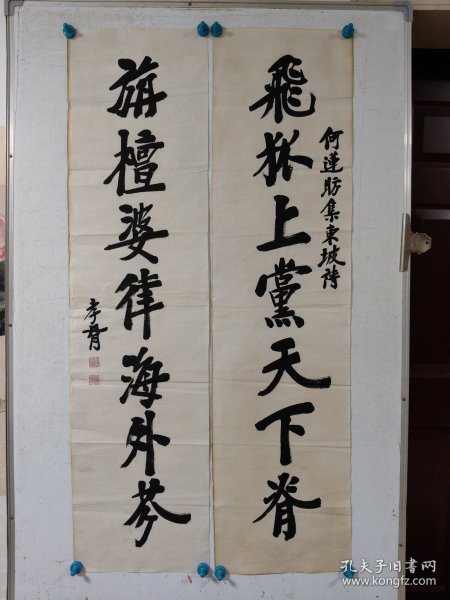 飛狐上黨天下脊
何蓮舫集東坡詩
旃檀婆律海外芬
孝胥
孔夫子旧书网
www.kongfz.com